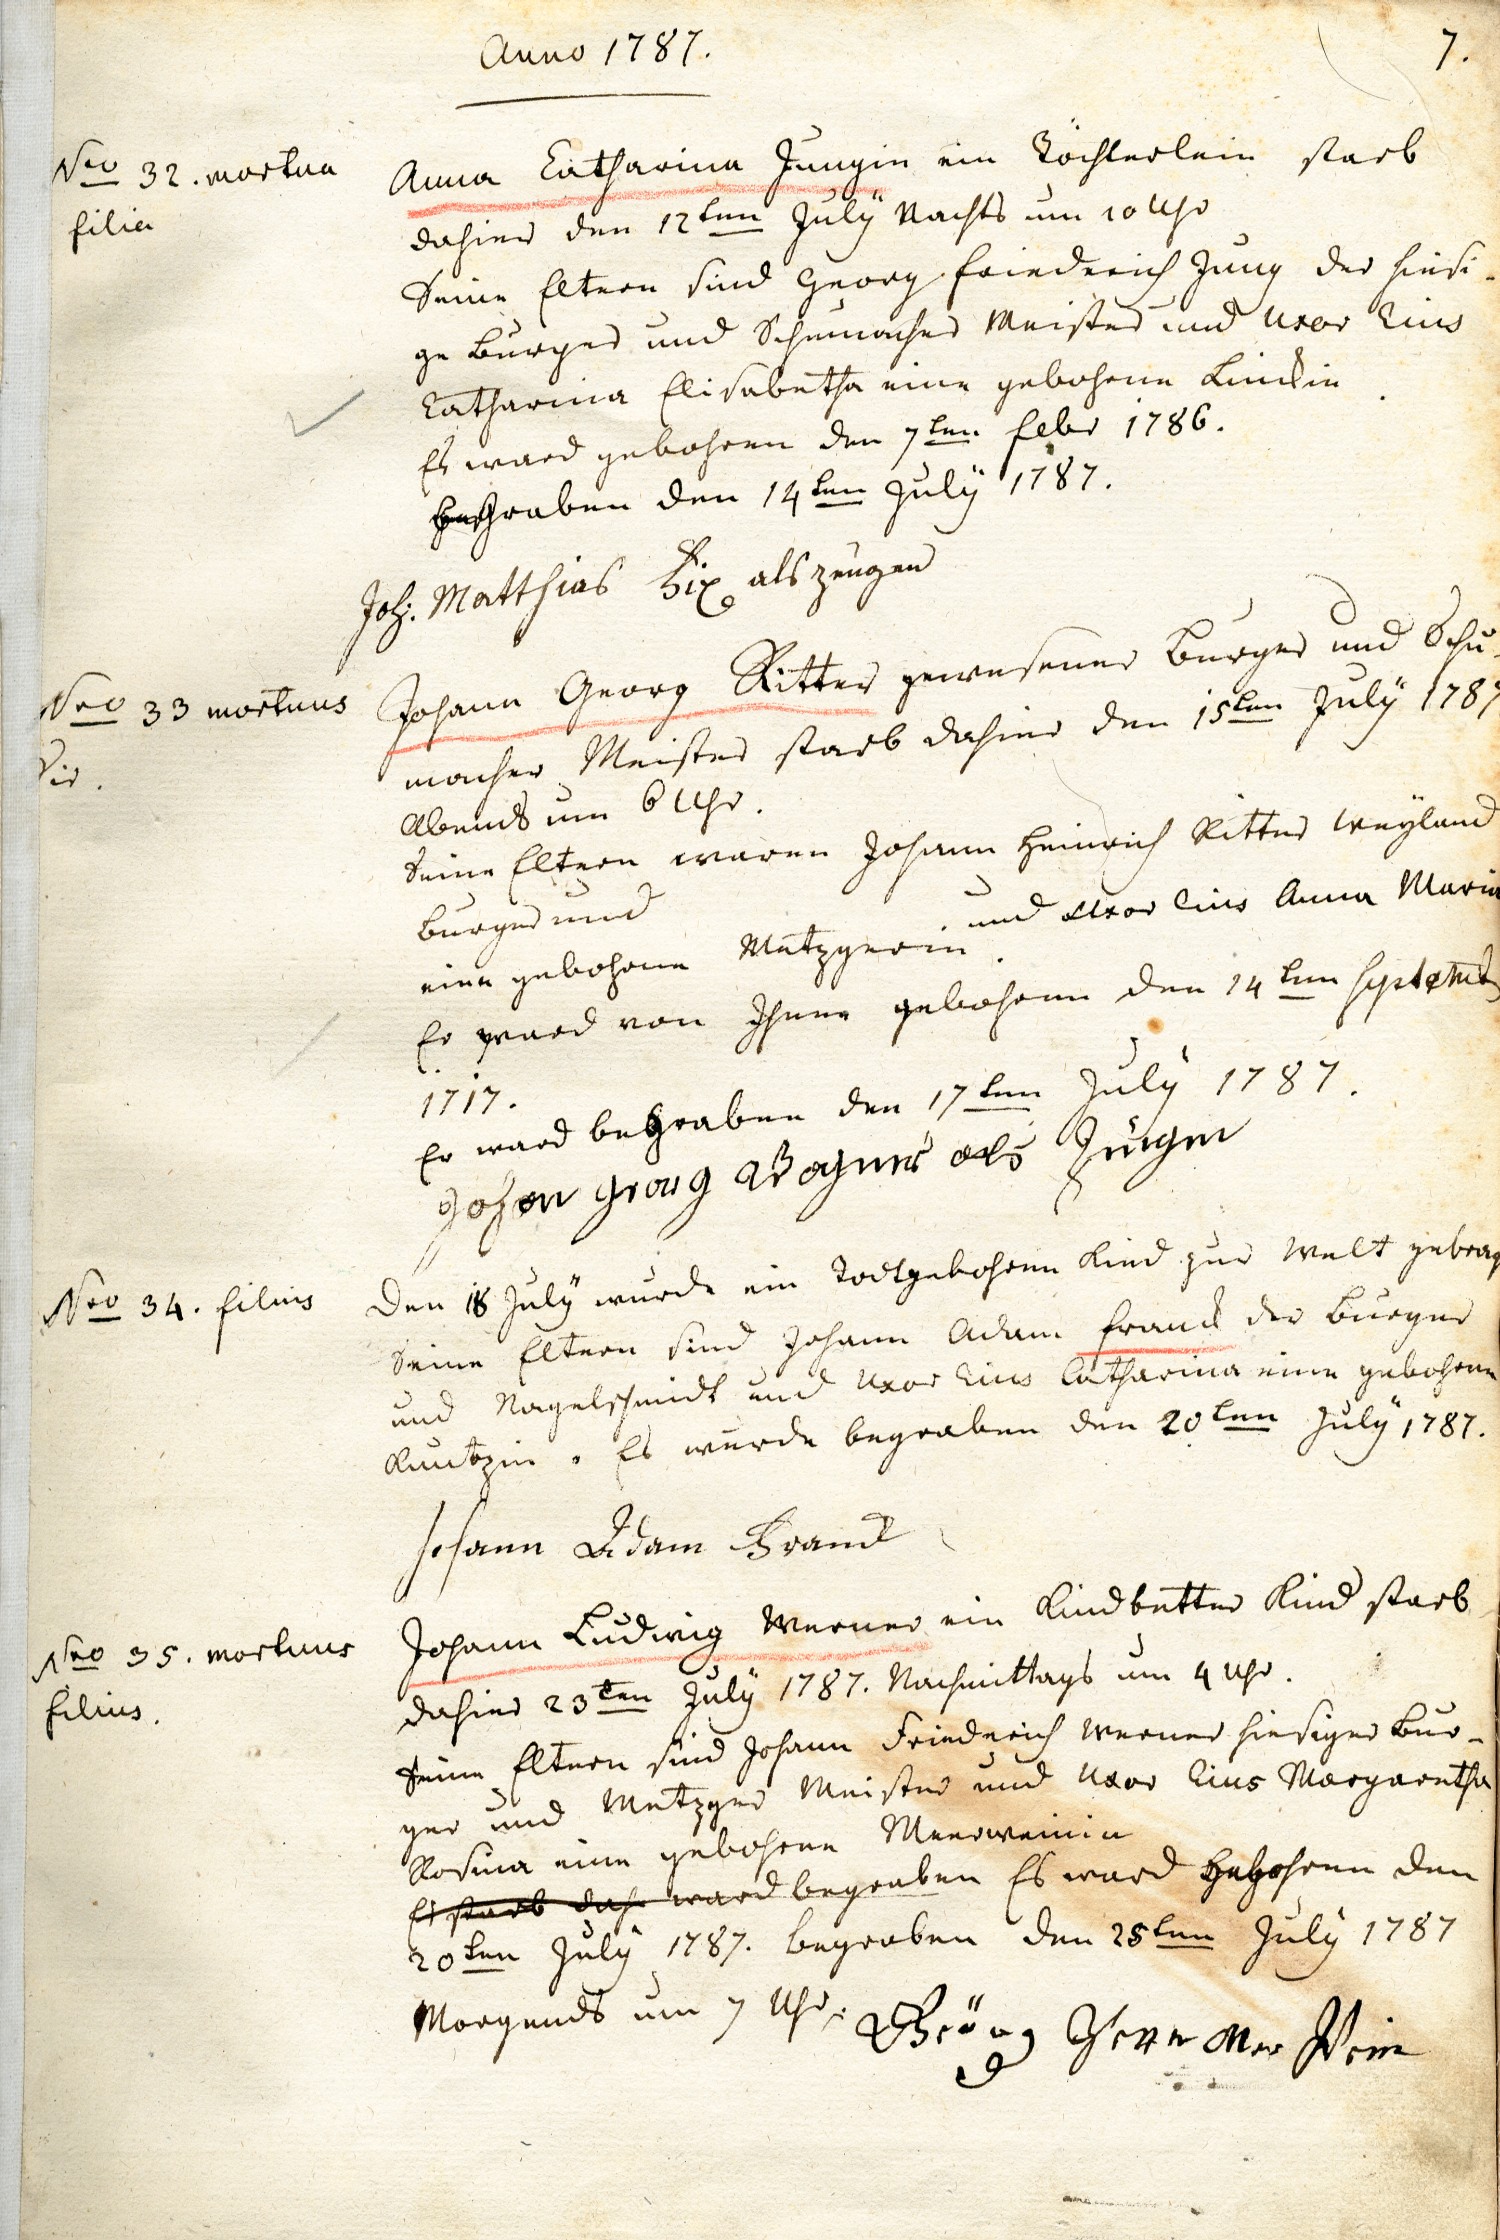 Anno 1787.
7.
Nro 32. mortua
filia
Anna Catharina Jungin ein Töchterlein starb
dahier den 12ten July Nachts um 10 Uhr
Seine Eltern sind Georg Friedrich Jung der hiesi-
ge Burger und Schumacher Meister und Uxor Eius
Catharina Elisabetha eine gebohrne Linckin
Es ward gebohren den 7ten Febr 1786.
begraben den 14ten July 1787.
Joh. Matthias als zeugen
Nro 33 mortuus
Vir.
Johann Georg Ritter gewesener Burger und Schu-
macher Meister starb dahier den 15ten July 1787
Abends um 6 Uhr.
Seine Eltern waren Johann Heinrich Ritter weyland
Burger und
und Uxor Eius Anna Maria
eine gebohrne Metzgerin.
Er ward von Ihnen gebohren den 14ten Septemb
1717.
Er ward begraben den 17ten July 1787.
Johan Georg Wagner als Zeugen
Nro 34. filius
Den 18 July wurde ein Todtgebohren Kind zur Welt gebrag
Seine Eltern sind Johann Adam Franck der Burger
und Nagelschmidt und Uxor Eius Catharina eine gebohrne
Kuntzin. Es wurde begraben den 20ten July 1787.
Johann Adam Franck
Nro 35. mortuus
filius.
Johann Ludwig Werner ein Kindbetter Kind starb
dahier 23ten July 1787. Nachmittags um 4 Uhr.
Seine Eltern sind Johann Friedrich Werner hiesiger Bur-
ger und Metzger Meister und Uxor Eius Margaretha
Rosina eine gebohrne Meerweinin
Es starb dah ward begraben Es ward gebohren den
20ten July 1787. begraben den 25ten July 1787
Morgends um 7 Uhr.
Geörg Mer Wein